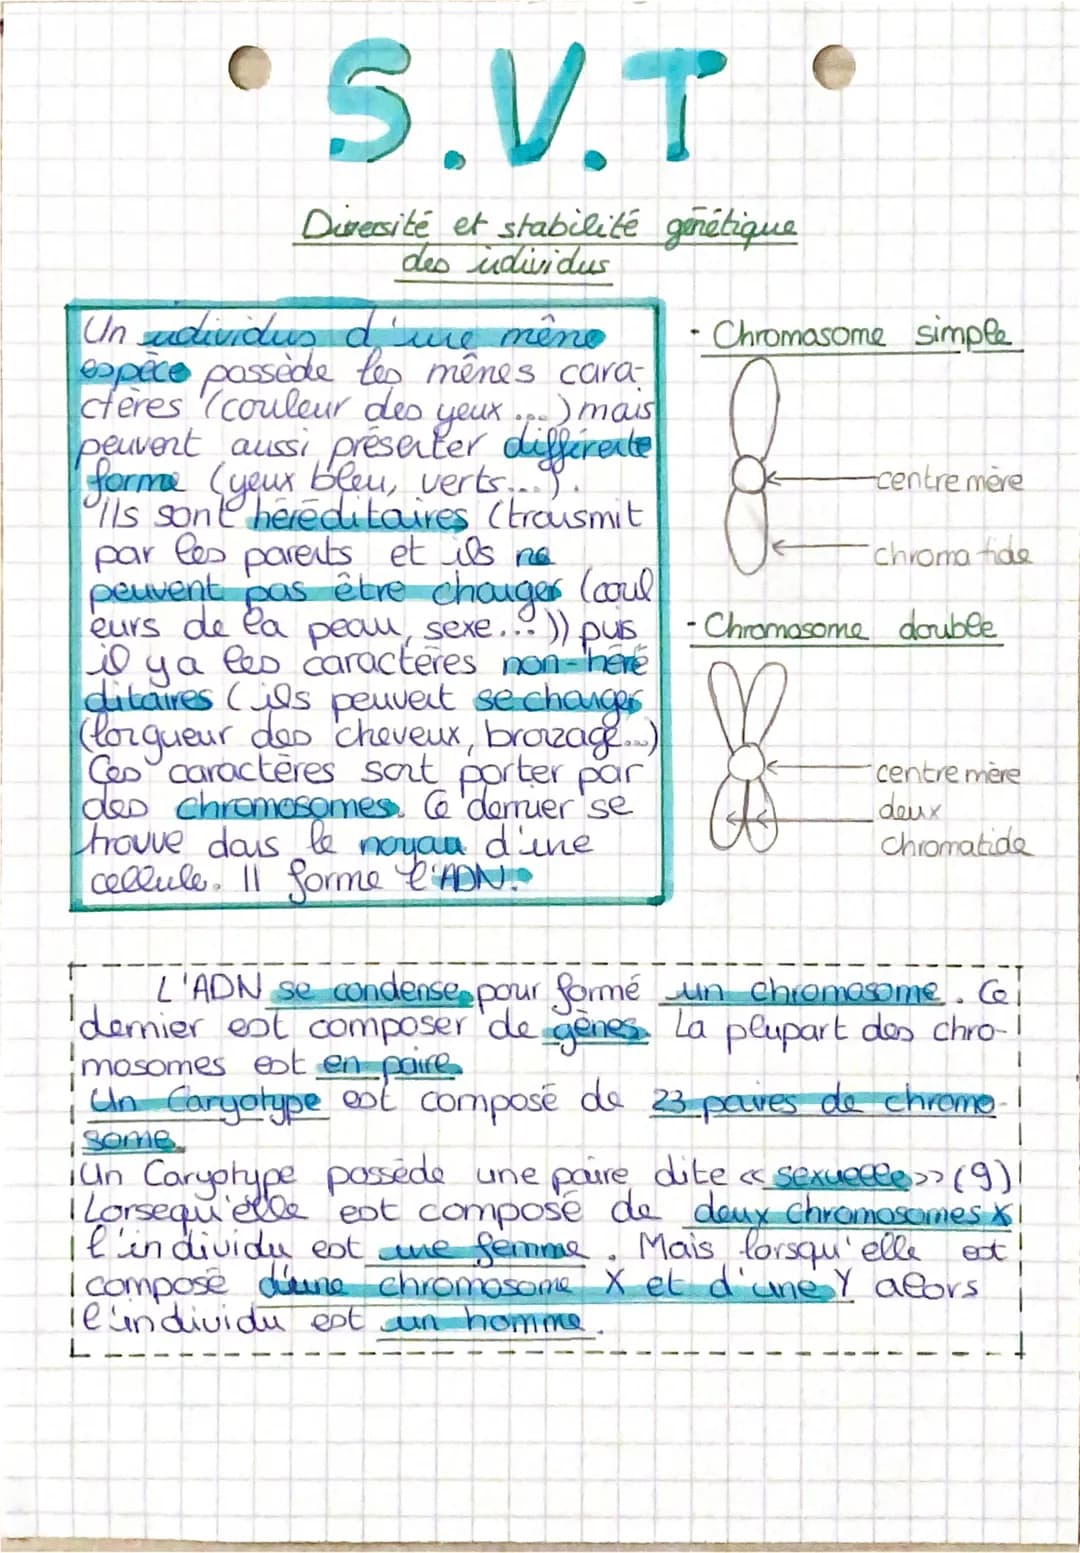 S.V.T
Diversité et stabilité génétique
des individus
Un individus d'une même
espèce possède les mêmes cara-
ctères (couleur des yeux ...) mais
peuvent aussi présenter différente
forme (yeux bleu, verts...).
Ils sont héréditaires (transmit
par les parents et ils ne
peuvent pas être changer (coul
eurs de la peau, sexe...)) puis
il y a les caractères non-héré
ditaires (ils peuvent se changer
(longueur des cheveux, bronzage...)
Ces caractères sont porter par
des chromosomes. Ce dernier se
trouve dans le noyau d'une
cellule. Il forme l'ADN.
- Chromasome simple
centre mère
chromatide
- Chromosome double
centre mère
deux
chromatide
L'ADN se condense pour formé un chromosome. Ce
dernier est composer de gènes. La plupart des chro-
mosomes est en paire.
Un Caryotype est composé de 23 paires de chromo-
some.
Un Caryotype possède une paire dite << sexuelle >> (9)
Lorsequ'elle est composé de deux chromosomes X
l'individu est une femme. Mais lorsqu'elle est
composé d'une chromosome X et d'une Y alors
l'individu est un homme.